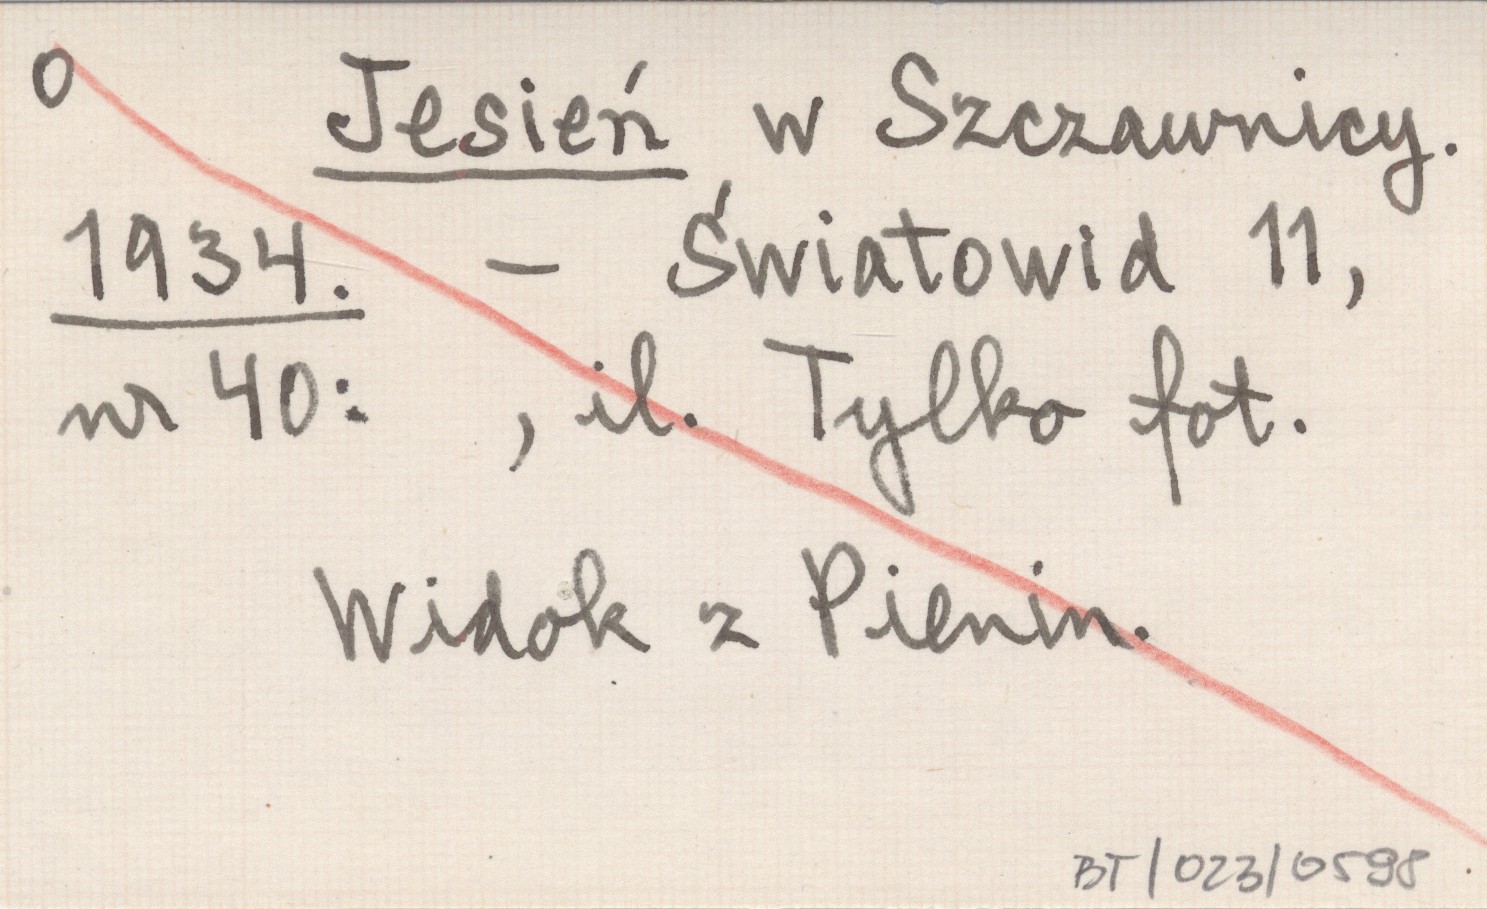 0 Jesień w Szczawnicy.
1934. - Światowid 11,
nr 40: , il. Tylko fot.
Widok z Pienin.
BT/023/0598